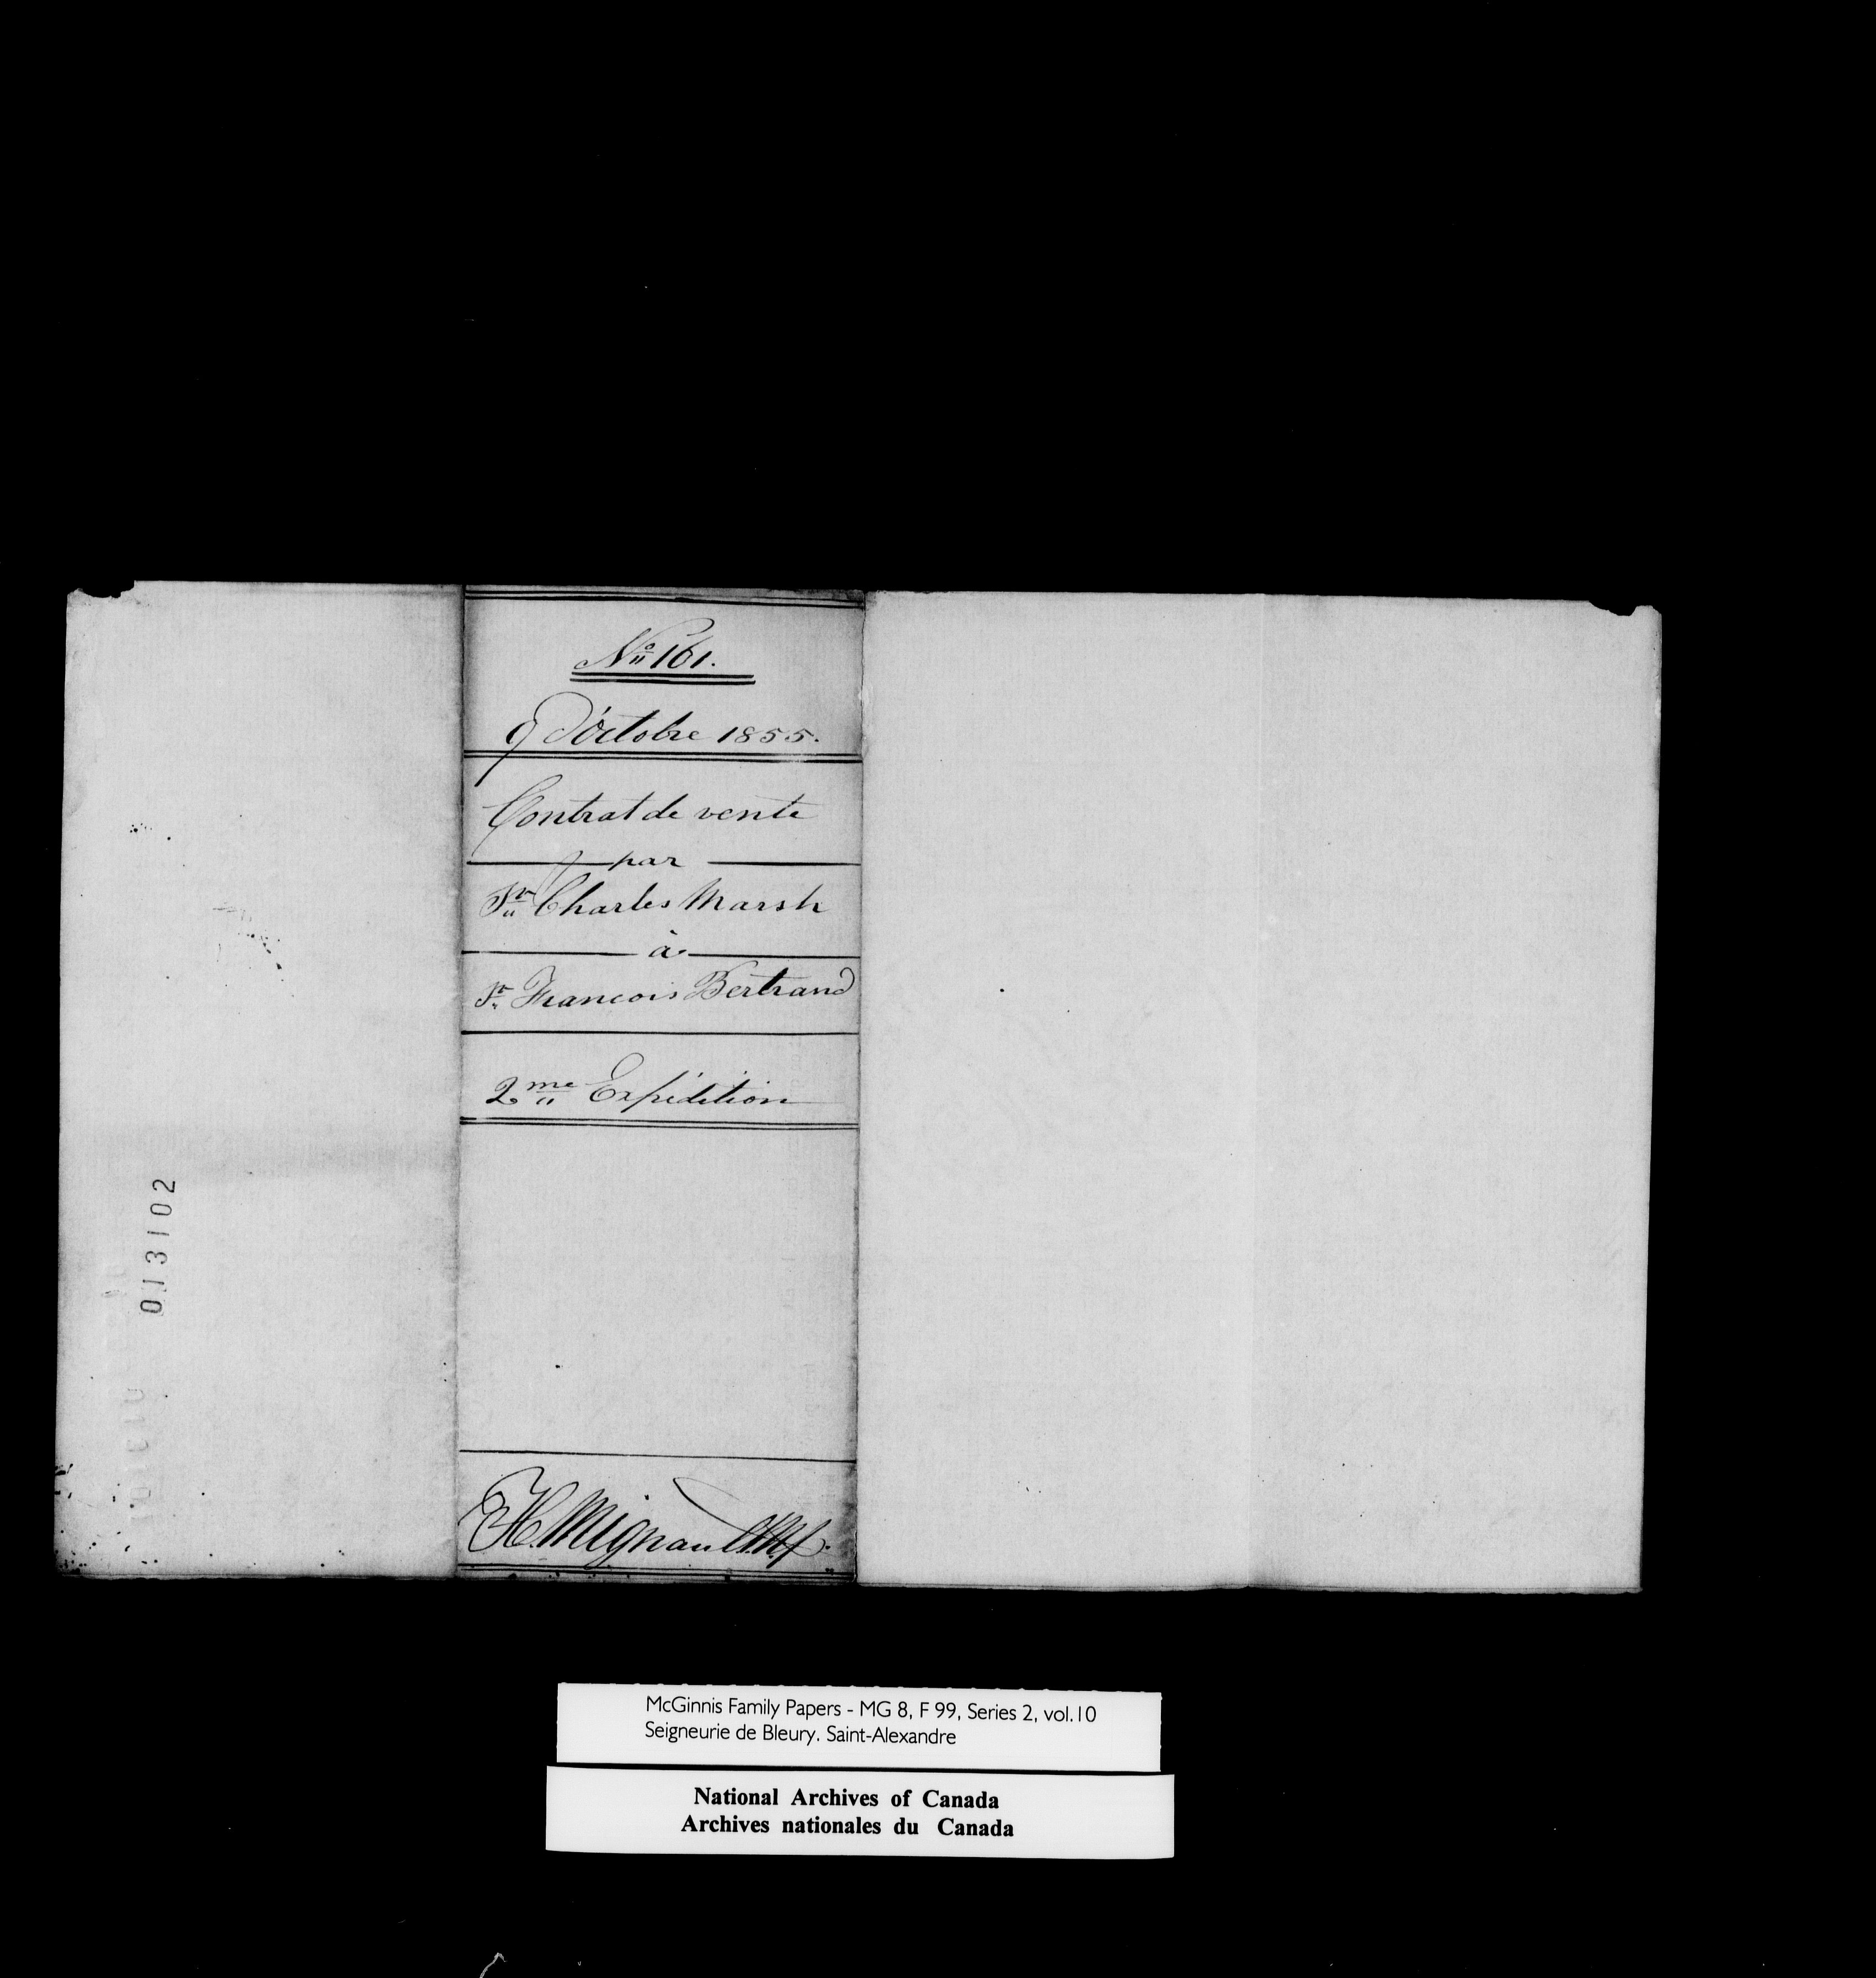 No 161.
9 D'octobre 1855.
Contrat de vente
par
Sr Charles Marsh
à
Sr Francois Bertrand
2me Expédition
H. Mignault N.P.
013102
McGinnis Family Papers - MG 8, F 99, Series 2, vol.10
Seigneurie de Bleury. Saint-Alexandre
National Archives of Canada
Archives nationales du Canada